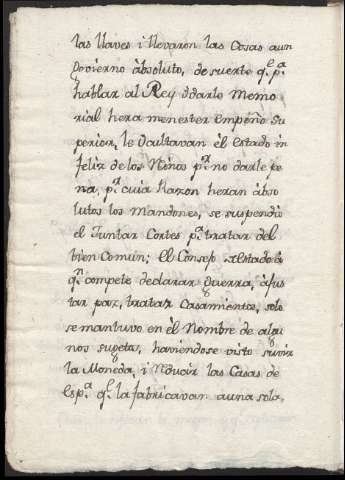 las llaves i llevaron las Cosas a un
Govierno àbsoluto, de suerte q.^e p.^a
hablar al Rey ò darle memo
rial hera menester empeño Su
perior, le Ocultavan èl estado in
feliz de los Reinos p.^r no darle pe
na, p.^r cuia Razon heran àbso
lutos los mandones, se suspendiò
el Juntar Cortes p.^a tratar del
bien Comùn; el Consejo de estado à
q.^n compete declarar Guerra, àjus
tar paz, tratar Casamientos, solo
se mantuvo en èl Nombre de algu
nos sugetos, haviendose visto suvir
la Moneda, i Reducir las Casas de
Esp.^a q.^e la fabricavan a una sola,